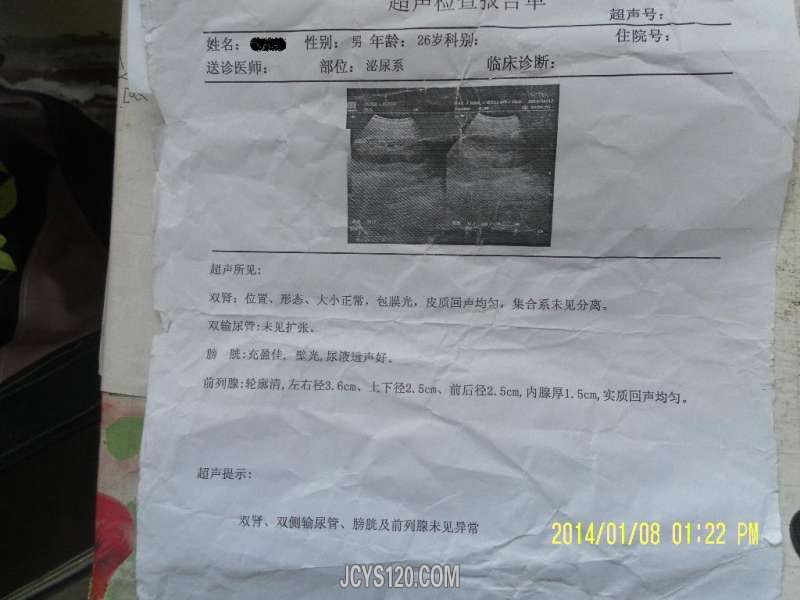 超声检查报告单
超声号:
姓名: 性别: 男 年龄: 26岁科别:
住院号:
送诊医师: 部位: 泌尿系 临床诊断:
超声所见:
双肾: 位置、形态、大小正常, 包膜光, 皮质回声均匀, 集合系未见分离。
双输尿管:未见扩张。
膀 胱:充盈佳, 壁光,尿液透声好。
前列腺:轮廓清,左右径3.6cm、上下径2.5cm、前后径2.5cm,内腺厚1.5cm,实质回声均匀。
超声提示:
双肾、双侧输尿管、膀胱及前列腺未见异常
2014/01/08 01:22 PM
JCYS120.COM